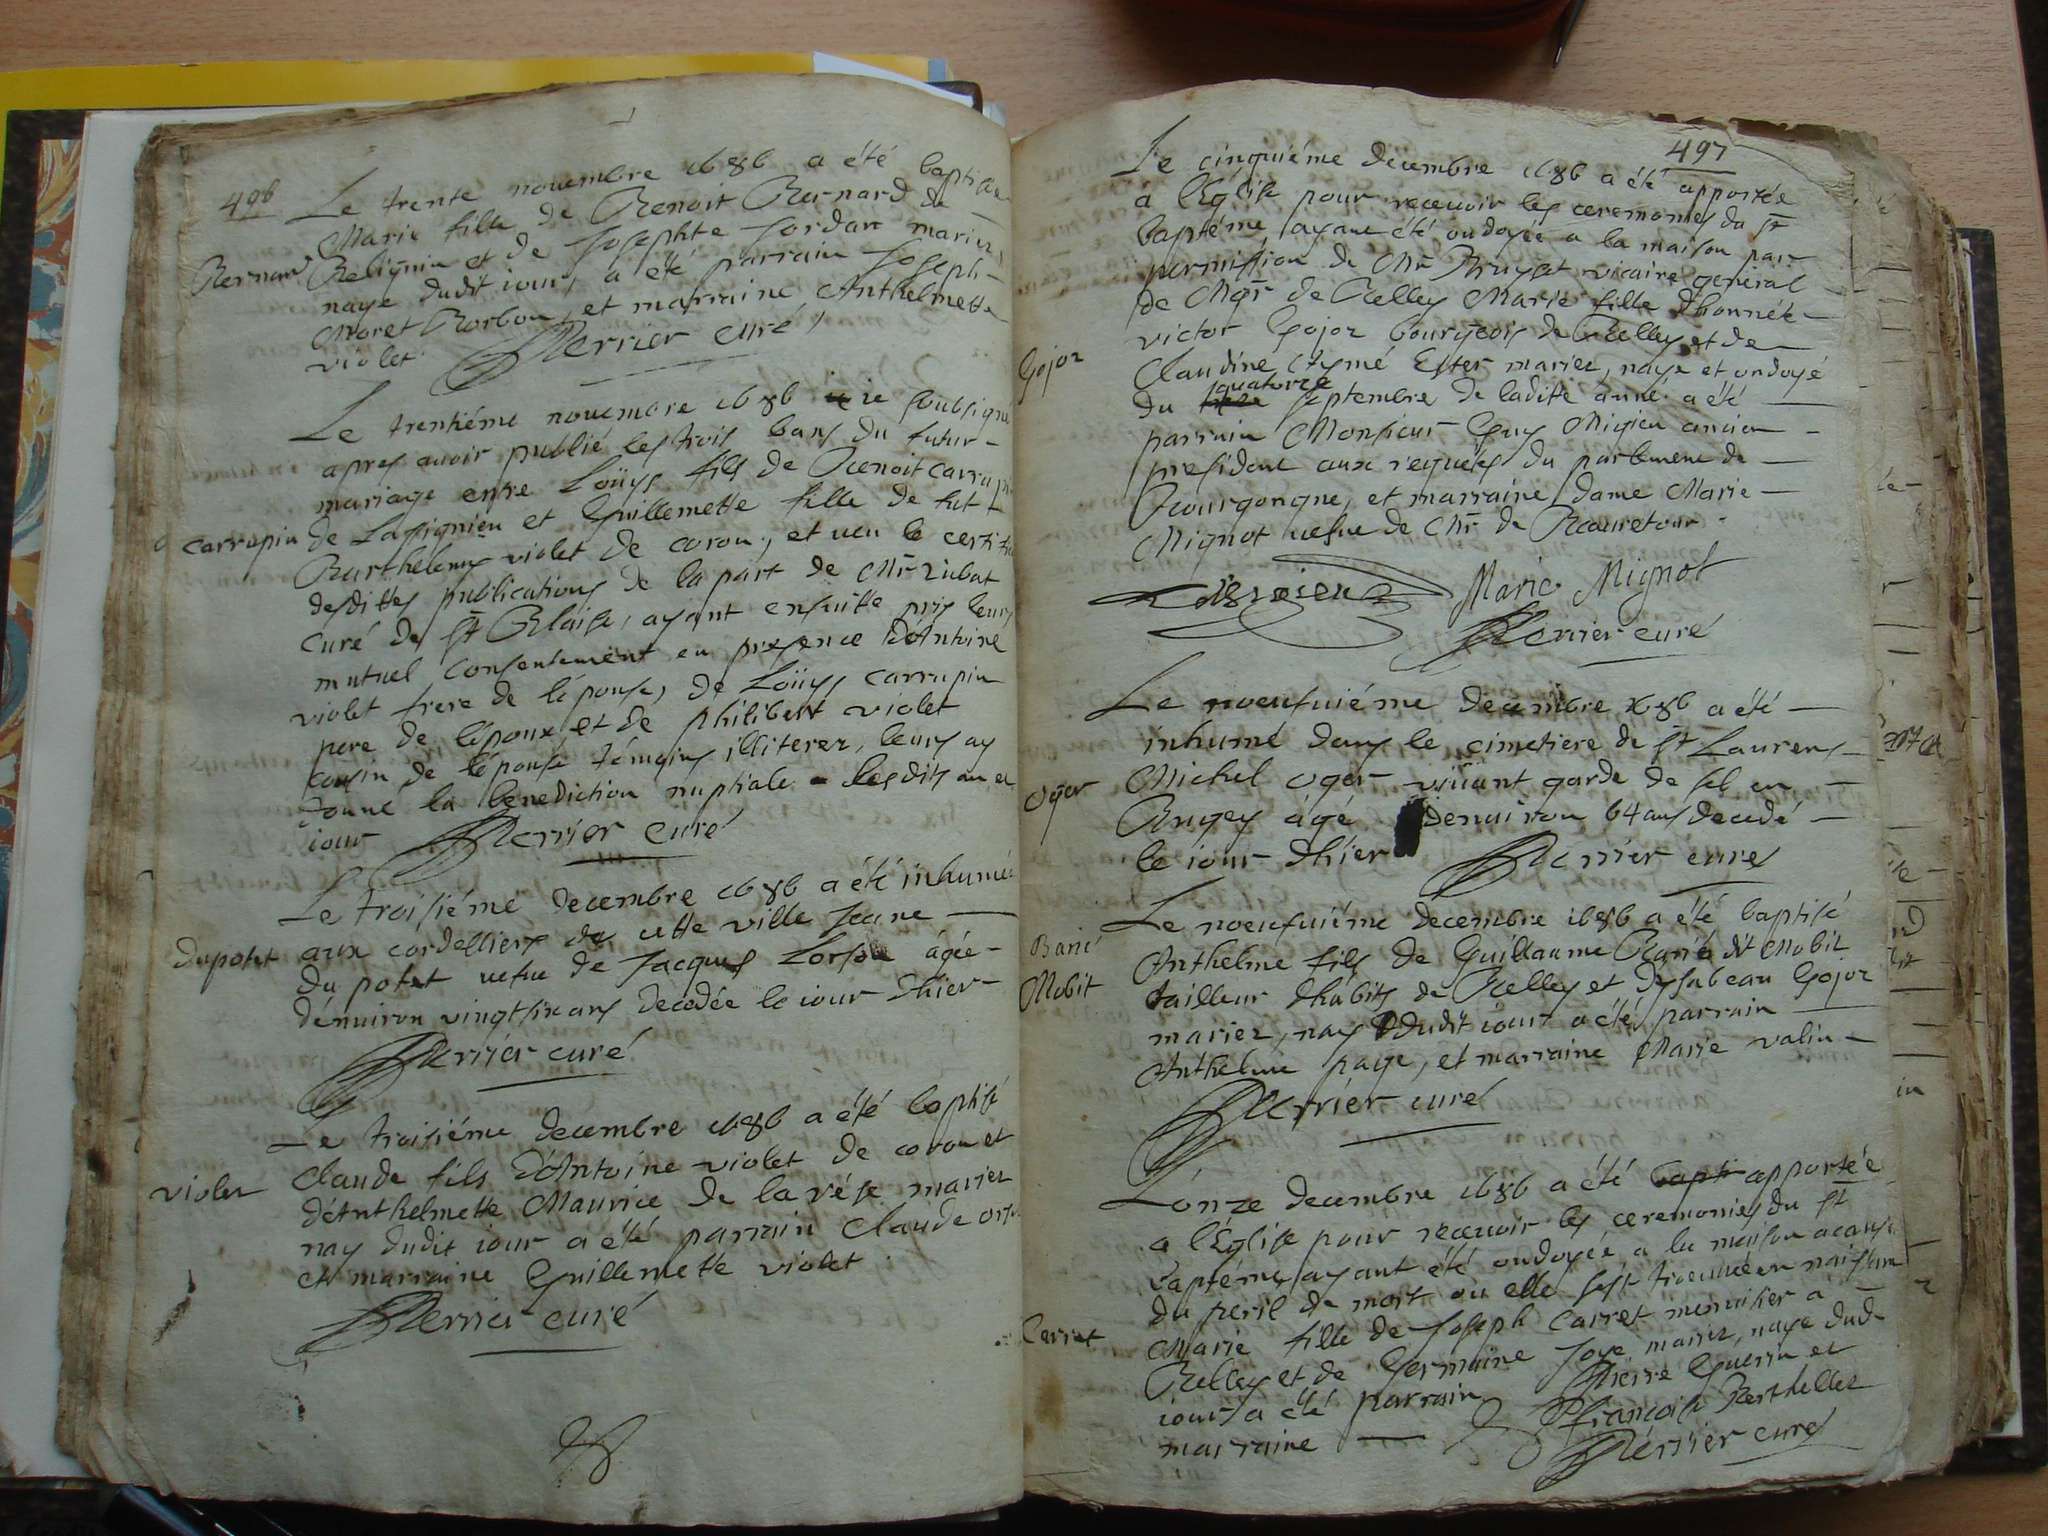 496
Le trente nouembre 1686 a été baptisée
Marie fille de Benoit Bernard de
Bernard
Belignin et de Josephte Jordan mariez,
naye dudit iour, a été parrain Joseph
Moret Borbou, et marraine Anthelmette
violet Perrier curé
Le trentiéme nouembre 1686 ie soubsigné
apres auoir publié les trois bans du futur
mariage entre Loüys fils de Benoit carrapin
carrapin
de Lassignieu et Guillemette fille de fut
Barthelemy violet de coron, et ueu le certificat
desdittes publications de la part de Mr Rubat
curé de St Blaise, ayant ensuitte pris leurs
mutuel consentement en presence d'Antoine
violet frere de l'épouse, de Loüys carrapin
pere de l'époux et de philibert violet
cousin de l'épouse témoins illiterez, leurs ay
donné la benediction nuptiale lesdits an et
iour Perrier curé
Le troisiéme decembre 1686 a été inhumée
dupotet
aux cordelliers de cette ville Jeane
du potet uefue de Jacques Lorson âgée
d'enuiron vingt six ans decedée le iour d'hier
Perrier curé
Le troisiéme decembre 1686 a été baptisé
violet
claude fils d'Antoine violet de coron et
d'Anthelmette Maurice de la vése mariez
nay dudit iour a été parrain claude
et marraine Guillemette violet
Perrier curé
497
Le cinquiéme decembre 1686 a été apportée
à l'Eglise pour receuoir les ceremonies du St
baptéme ayant été ondoyée a la maison par
permission de Mr Bruyset vicaire general
de Mgr de Belley Marie fille d'honnéte
victor Gojoz bourgeois de Belley et de
Gojoz
Claudine Aymé Ester mariez, naye et ondoyé
du quatorze septembre de laditte année a été
parrain Monsieur Guy Migieu ancien
president aux requétes du parlement de
Bourgongne, et marraine dame Marie
Mignot uefue de Mr de Beauretour
Migieu Marie Mignot
Perrier curé
Le noeufuiéme decembre 1686 a été
inhumé dans le cimetiere de St Laurens
oger
Michel oger viuant garde de sel en
Bugey âgé denuiron 64 ans decedé
le iour d'hier Perrier curé
Le noeufuiéme decembre 1686 a été baptisé
Barié
Anthelme fils de Guillaume Barié dit Mobit
Mobit
tailleur d'habits de Belley et dysabeau Gojoz
mariez, nay dudit iour a été parrain
Anthelme page, et marraine Marie valin
Perrier curé
L'onze decembre 1686 a été bapti apportée
a l'Eglise pour receuoir les ceremonies du St
baptéme, ayant été ondoyée a la maison a cause
du peril de mort ou elle s'est treuuée en naissant
Carret
Marie fille de Joseph Carret menuisier a
Belley et de Germaine Joye mariez, naye dud
iour a été parrain Pierre Guerin et
marraine françoise Berthellet
Perrier curé